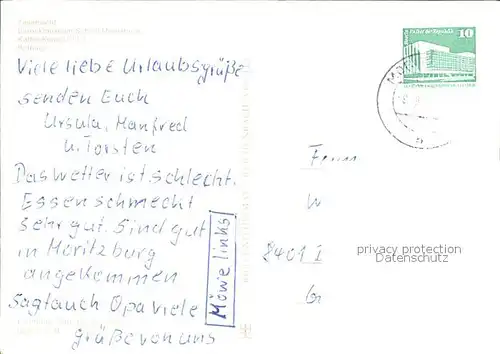 Viele liebe Urlaubsgrüße
senden Euch
Ursula, Manfred
u. Torsten
Das Wetter ist schlecht.
Essen schmeckt
sehr gut. Sind gut
in Moritzburg
angekommen
Sagt auch Opa viele
grüße von uns
Möwe links
10
Fam
W
8401 I
Gr
privacy protection
Datenschutz